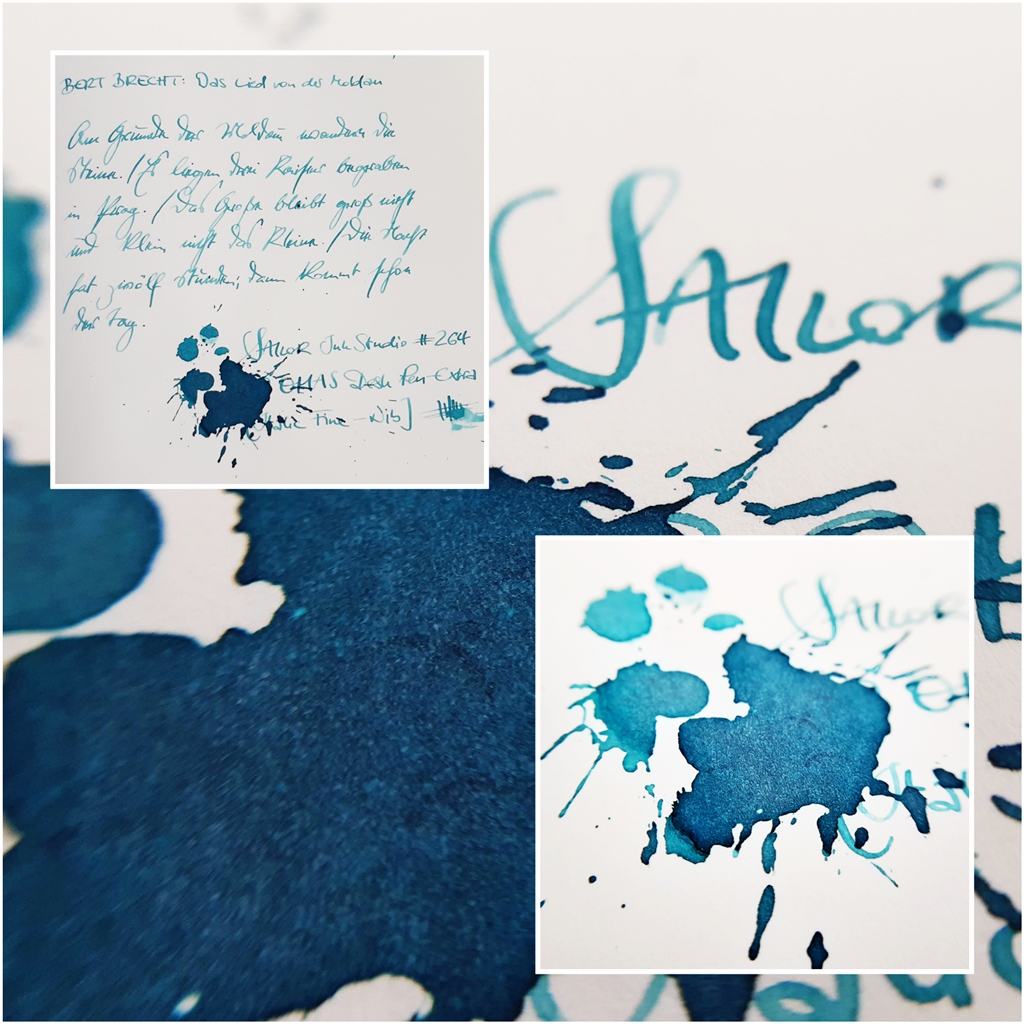 BERT BRECHT: Das Lied von der Moldau
Am Grunde der Moldau wandern die
Steine. / Es liegen drei Kaiser begraben
in Prag. / Das Große bleibt groß nicht
und klein nicht das Kleine. / Die Nacht
hat zwölf Stunden, dann kommt schon
der Tag.
SAILOR Ink Studio #264
OMAS Desk Pen - Extra
Fine - Nib]
SAILOR
SAILOR